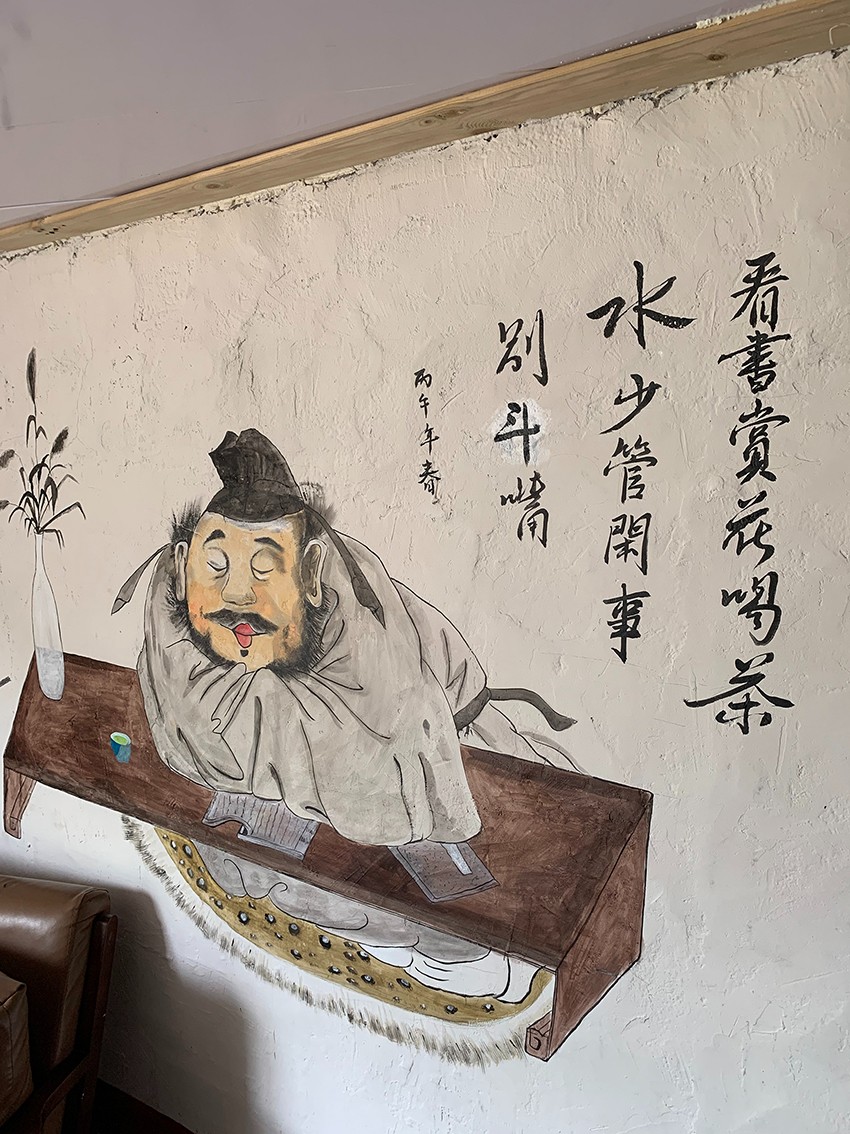 看書賞花喝茶
水少管閑事
别斗嘴
丙午年春